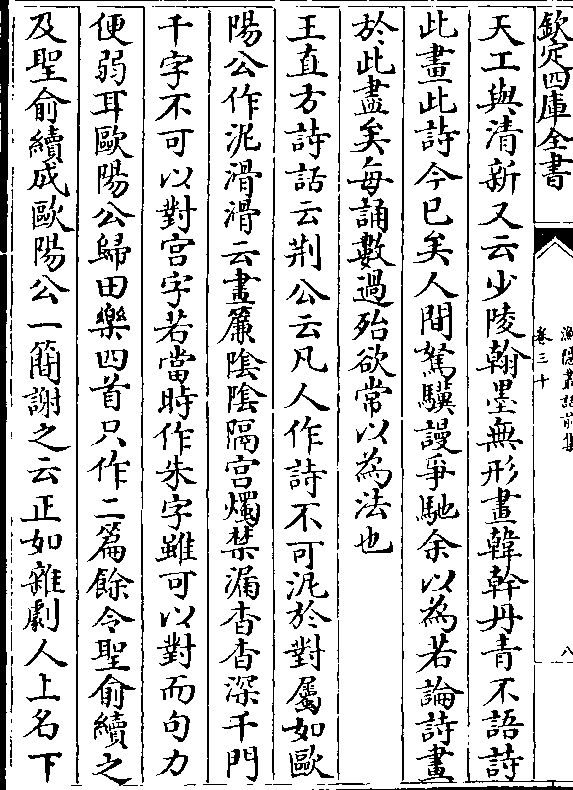 欽定四庫全書
漁隱叢話前集
卷三十
八
天工與清新又云少陵翰墨無形畫韓幹丹青不語詩
此畫此詩今已矣人間駑驥謾爭馳余以為若論詩畫
於此盡矣每誦數過殆欲常以為法也
王直方詩話云荆公云凡人作詩不可泥於對屬如歐
陽公作泥滑滑云畫簾隂隂隔宫燭禁漏杳杳深千門
千字不可以對宫字若當時作朱字雖可以對而句力
便弱耳歐陽公歸田樂四首只作二篇餘令聖俞續之
及聖俞續成歐陽公一簡謝之云正如雜劇人上名下